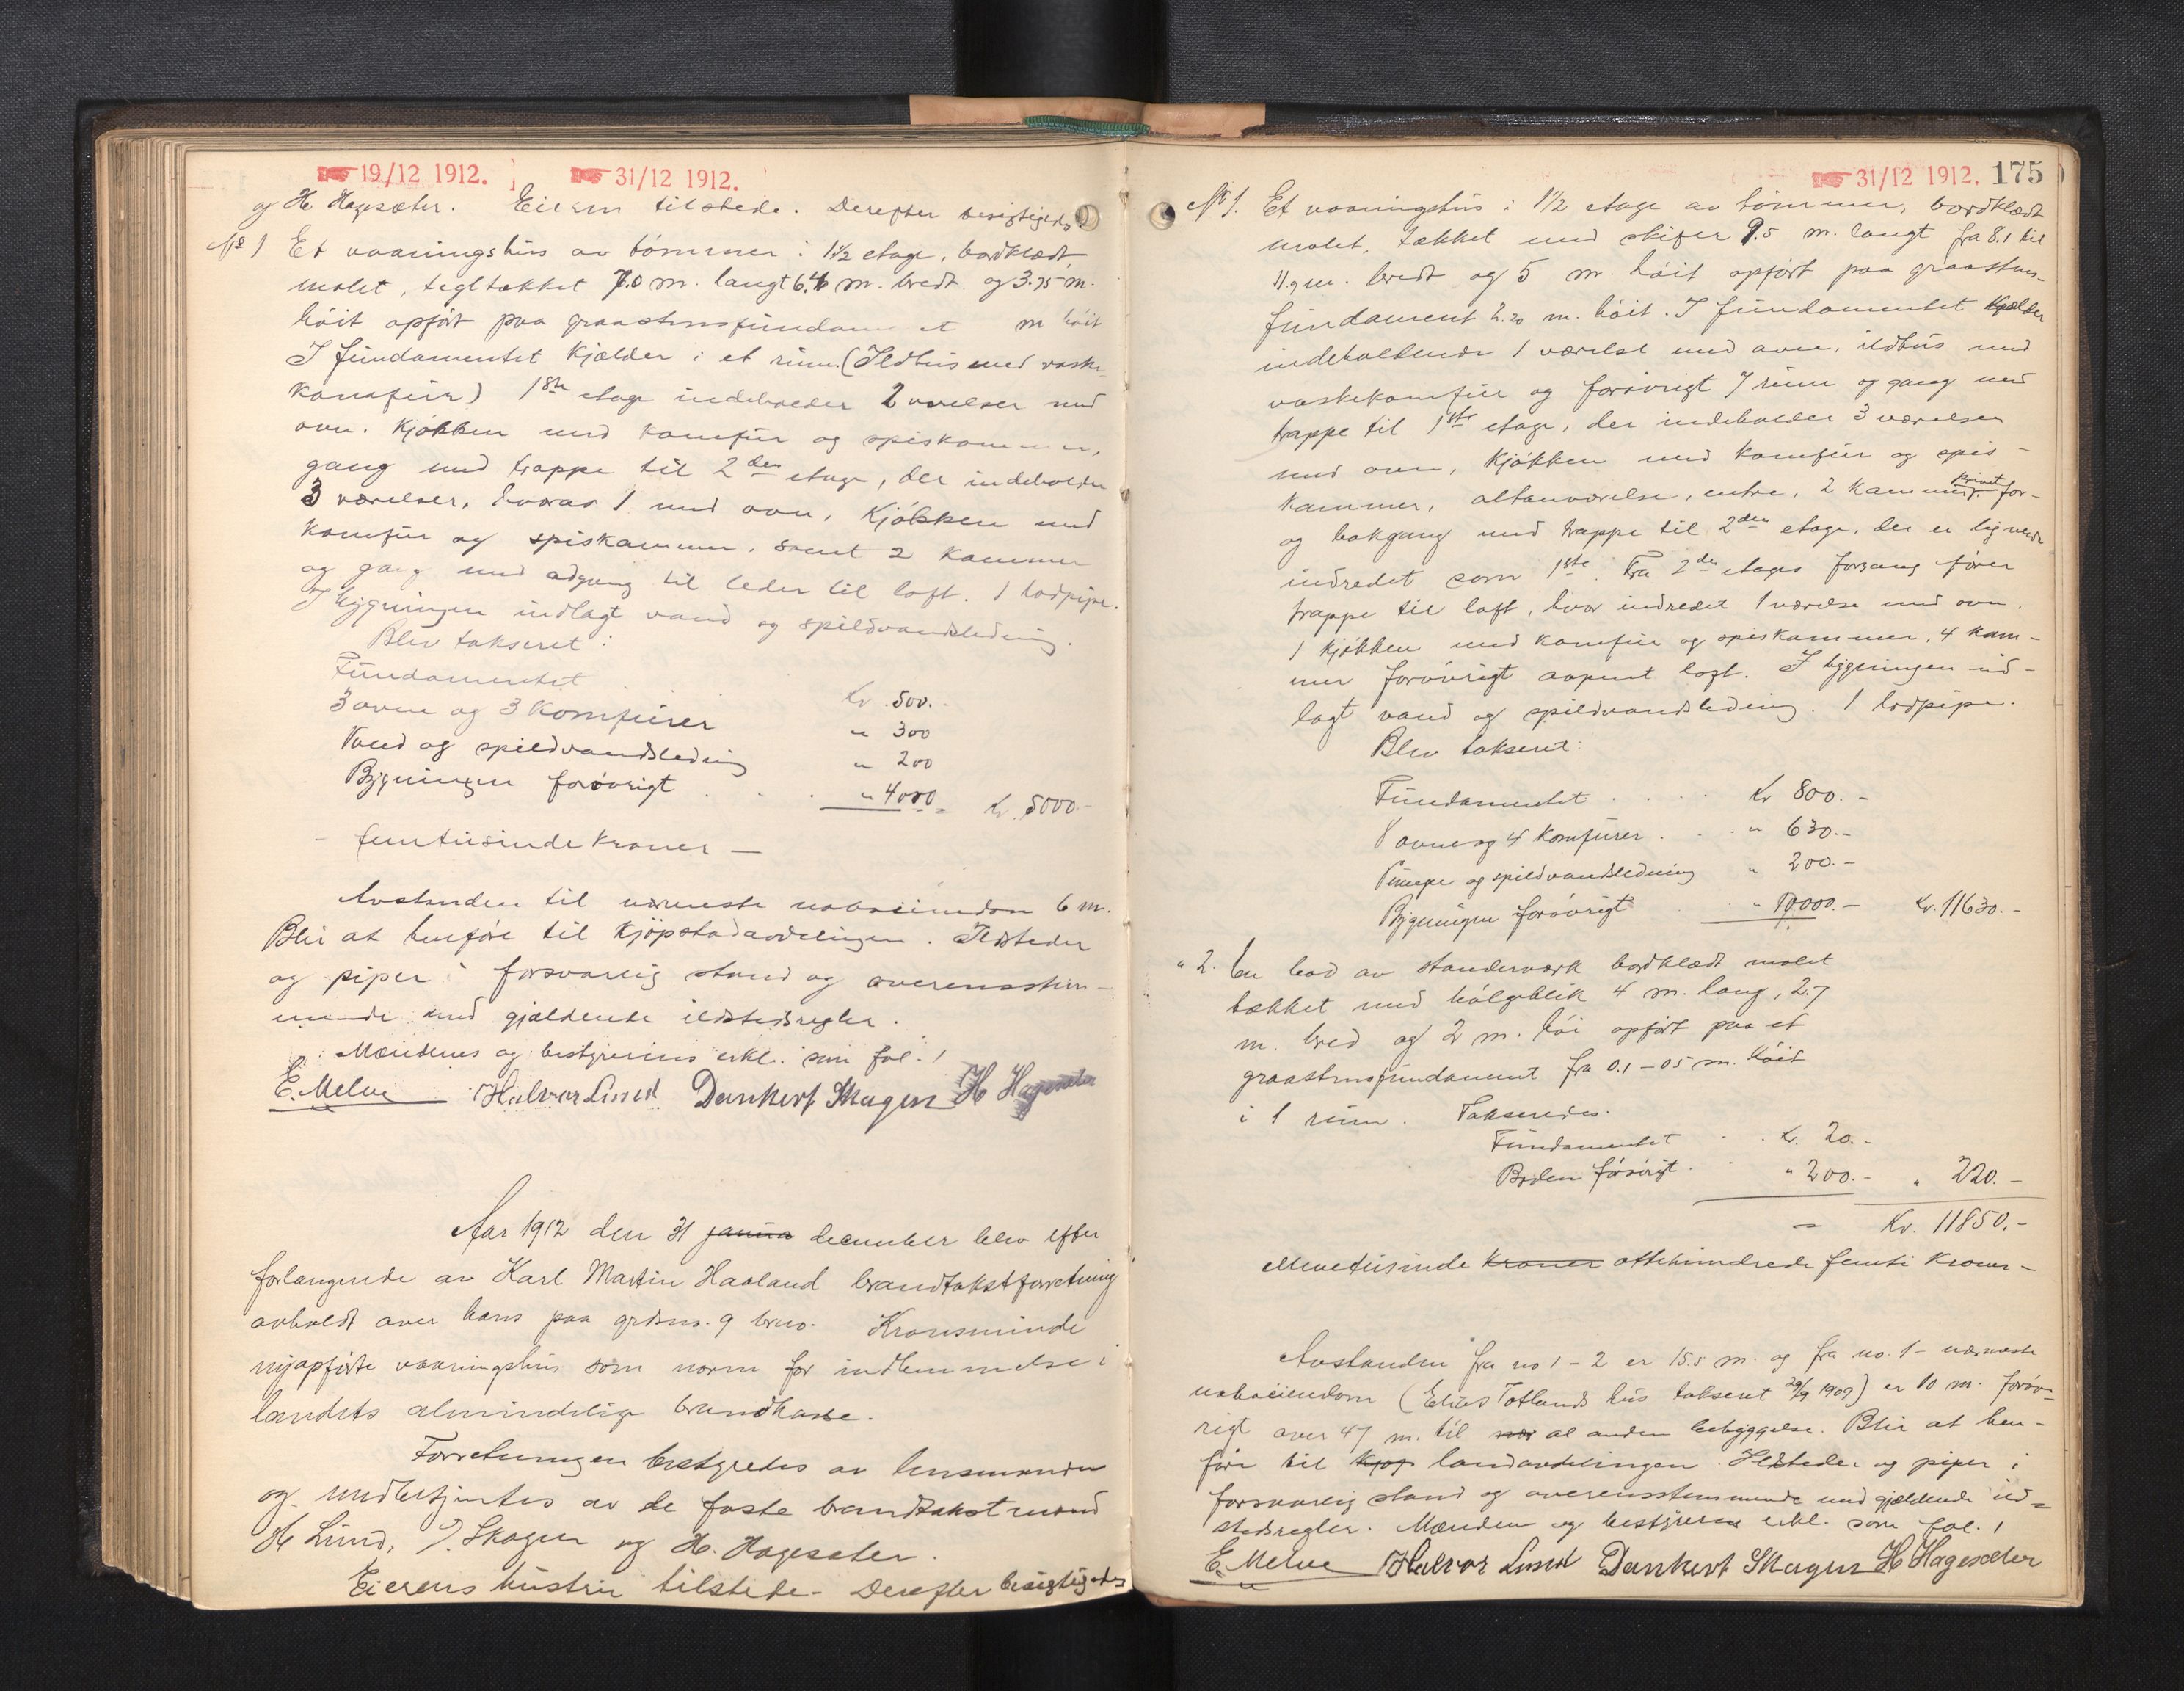 19/12 1912. 31/12 1912.
og H. Hagesæter. Eieren tilstede. Derefter besigtigedes
No 1 Et vaaningshus av tømmer i 1½ etage, bordklædt,
malet, tegltækket 7.0 m. langt 6.4 m. bredt og 3.75 m.
høit opført paa graastensfundament m høit
I fundamentet kjælder i et rum. (Ildhus med vaske-
komfur) 1ste etage indeholder 2 værelser med
ovn. Kjøkken med komfur og spiskammer,
gang med trappe til 2den etage, der indeholder
3 værelser, hvorav 1 med ovn, Kjøkken med
komfur og spiskammer, samt 2 kammer
og gang med adgang til leder til loft. 1 lodpipe.
I bygningen indlagt vand og spildvandsledning.
Blev takseret:
Fundamentet Kr. 500.-
3 ovne og 3 Komfurer " 300
Vand og spildvandsledning " 200
Bygningen forøvrigt . . . " 4000 = Kr. 5000.-
- femtusinde kroner -
Avstanden til nærmeste naboeiendom 6 m.
Blir at henføre til Kjøpstadavdelingen. Ildsteder
og piper i forsvarlig stand og overensstem-
mende med gjældende ildstedsregler.
Mændenes og bestyrerens erkl. som fol. 1
E. Melve Halvor Lund Dankert Skagen H Hagesæter
Aar 1912 den 31 janua december blev efter
forlangende av Karl Martin Haaland brandtakstforretning
avholdt over hans paa grdsno. 9 brno. Kronsminde
nyopførte vaaningshus som norm for indlemmelse i
landets almindelige brandkasse.
Forretningen bestyredes av lensmanden
og underskjentes av de faste brandtakstmænd
H Lund, D. Skagen og H. Hagesæter.
Eierens hustru tilstede. Derefter besigtigedes
31/12 1912. 175
No 1. Et vaaningshus i 1½ etage av tømmer, bordklædt
malet, tækket med skifer 9.5 m. langt fra 8.1 til
11.9 m. bredt og 5 m. høit opført paa graastens-
fundament 2.20 m. høit. I fundamentet kjælder
indeholdende 1 værelse med ovn, ildhus med
vaskekomfur og forøvrigt 7 rum og gang med
trappe til 1ste etage, der indeholder 3 værelser
med ovn, kjøkken med komfur og spis-
kammer, altanværelse, entre, 2 kammer, privet for-
og bakgang med trappe til 2den etage, der er lignende
indredet som 1ste. Fra 2den etages forgang fører
trappe til loft, hvor indredet 1 værelse med ovn.
1 kjøkken med komfur og spiskammer, 4 kam-
mer forøvrigt aapent loft. I bygningen ind-
lagt vand og spildvandsledning. 1 lodpipe.
Blev takseret:
Fundamentet . . . . Kr 800.-
8 ovne og 4 Komfurer . . . " 630.-
Pumpe og spildvandsledning " 200.-
Bygningen forøvrigt " 10000.- Kr. 11630.-
" 2. En bod av standerværk bordklædt malet
tækket med bølgeblik 4 m. lang, 2.7
m. bred og 2 m. høi opført paa et
graastensfundament fra 0.1 - 05 m. høit
i 1 rum. Takseredes.
Fundamentet . . Kr. 20.-
Boden forøvrigt . . " 200.- " 220.-
= Kr. 11850.-
ellevetusinde kroner ottehundrede femti kroner -
Avstanden fra no 1 - 2 er 15.5 m. og fra no. 1 - nærmeste
naboeiendom (Elias Totlands hus takseret 29/9 1909) er 10 m. forøv-
rigt over 47 m. til nær al anden bebyggelse. Blir at hen-
føre til kjøp landavdelingen. Ildsteder og piper i
forsvarlig stand og overensstemmende med gjældende ild-
stedsregler. Mænden og bestyreren erkl. som fol. 1
E. Melve Halvor Lund Dankert Skagen H Hagesæter